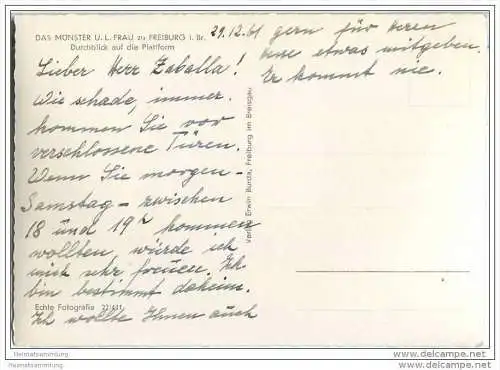 DAS MÜNSTER U. L. FRAU zu FREIBURG i. Br.
Durchblick auf die Plattform
29.12.61
Lieber Herr Zaballa!
Wie schade, immer
kommen Sie vor
verschlossene Türen.
Wenn Sie morgen -
Samstag - zwischen
18 und 19h kommen
wollten, würde ich
mich sehr freuen. Ich
bin bestimmt daheim.
Ich wollte Ihnen auch
gern für Herrn
etwas mitgeben.
Er kommt nie.
Echte Fotografie 22/411
Verlag Erwin Burda, Freiburg im Breisgau
Heimatsammlung
Heimatsammlung
www.delcampe.net